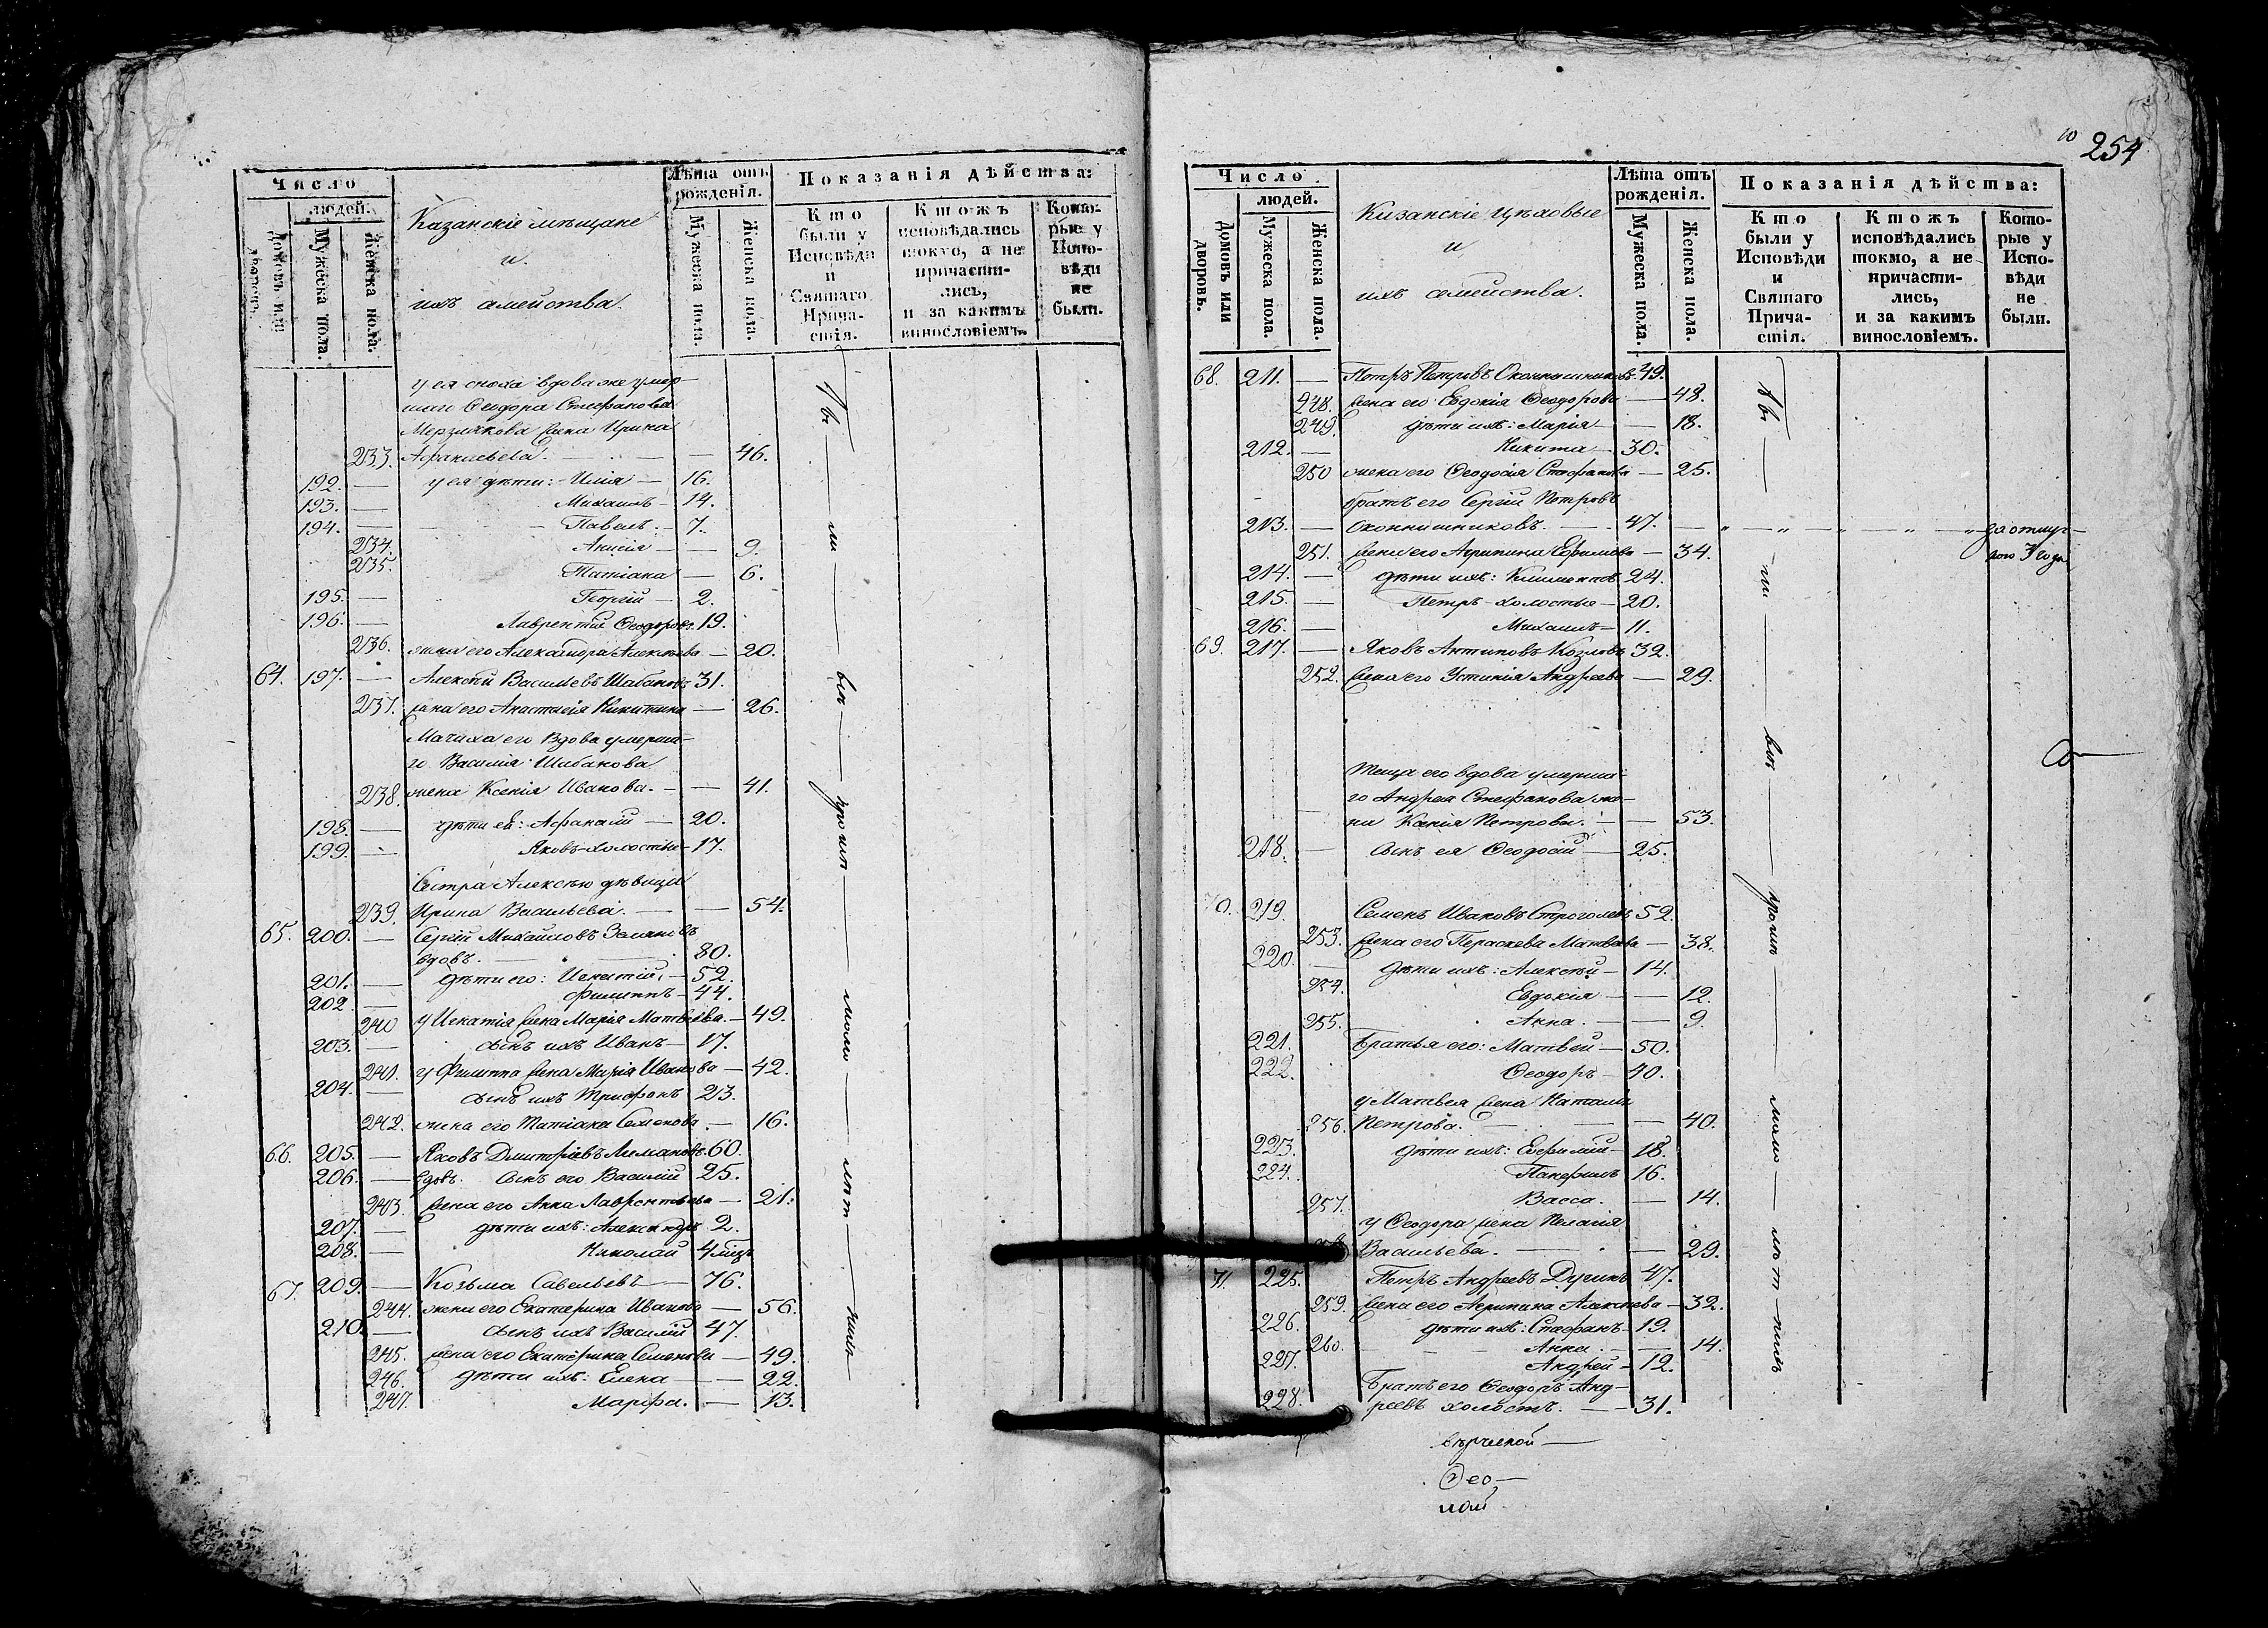 Число
людей.
Домовъ или дворовъ.
Мужеска пола.
Женска пола.
Казанскіе мѣщане
и
ихъ семейства.
Лѣта отъ рожденія.
Мужеска пола.
Женска пола.
Показанія дѣйства:
Кто были у Исповѣди и Святаго Прича-стія.
Ктожъ исповѣдались токмо, а не причасти-лись, и за какимъ винословіемъ.
Кото-рые у Испо-вѣди не были.
у ея сноха вдова же умер-
шаго Ѳеодора Стефанова
Мерзлякова жена Ирина
233. Афанасьева. — 46.
192. — у ея дѣти: Илія — 16.
193. — Михаилъ — 14.
194. — Павелъ — 7.
234. Анисія — 9.
235. Татіана — 6.
195. — Георгій — 2.
196. — Лаврентій Ѳеодоровъ 19.
236. жена его Александра Алексѣева — 20.
64. 197. — Алексѣй Васильевъ Шабановъ 31.
237. жена его Анастасія Никитина — 26.
Мачиха его вдова умерша-
го Василія Шабанова
238. жена Ксенія Иванова. — 41.
198. — дѣти ея: Афанасій — 20.
199. — Яковъ холостые — 17.
Сестра Алексѣю дѣвица
239. Ирина Васильева. — 54.
65. 200. — Сергій Михайловъ
вдовъ. — 80.
201. — дѣти его: Игнатій — 52.
202. — Филиппъ — 44.
240 у Игнатія жена Марія Матвѣева. — 49.
203. — сынъ ихъ Иванъ — 17.
241. у Филиппа жена Марія Иванова — 42.
204. — сынъ ихъ Трифонъ 23.
242. жена его Татіана Семенова. — 16.
66. 205. — Яковъ Дмитріевъ 60.
206. — вдовъ. сынъ его Василій 25.
243. жена его Анна Лаврентьева — 21.
207. — дѣти ихъ: Александръ 2.
208. — Николай 4 мѣц.
67. 209. — Козьма Савельевъ — 76.
244. жена его Екатерина Иванова — 56.
210. — сынъ ихъ Василій 47.
245. жена его Екатерина Семенова — 49.
246. дѣти ихъ: Елена — 22.
247. Марфа. — 13.
10
254
Число
людей.
Домовъ или дворовъ.
Мужеска пола.
Женска пола.
Казанскіе цѣховые
и
ихъ семейства.
Лѣта отъ рожденія.
Мужеска пола.
Женска пола.
Показанія дѣйства:
Кто были у Исповѣди и Святаго Прича-стія.
Ктожъ исповѣдались токмо, а не причасти-лись, и за какимъ винословіемъ.
Кото-рые у Испо-вѣди не были.
68. 211. — Петръ Петровъ Оконнишниковъ 49.
248. жена его Евдокія Ѳеодорова — 48.
249. дѣти ихъ: Марія — 18.
212. — Никита — 30.
250 жена его Ѳеодосія Стефанова — 25.
братъ его Сергій Петровъ
213. — Оконнишниковъ. — 47. — за отлуч-
251. жена его Агрипина Ефимова — 34.
214. — дѣти ихъ: Климентъ 24.
215. — Петръ холостые — 20.
216. — Михаилъ — 11.
69. 217. — Яковъ Антиповъ Козловъ 32.
252. жена его Устинія Андреева — 29.
Теща его вдова умерша-
го Андрея Стефанова же-
на Ксенія Петрова. — 53.
218. — сынъ ея Ѳеодосій — 25.
70. 219. Семенъ Ивановъ 52.
253. жена его Параскева Матвѣева — 38.
220. дѣти ихъ: Алексѣй — 14.
254. Евдокія — 12.
255. Анна. — 9.
221. Братья его: Матвей — 50.
222. Ѳеодоръ — 40.
у Матвея жена Наталія
256. Петрова. — 40.
223. дѣти ихъ: Ефимій — 18.
224. Панфилъ 16.
257. Васса. — 14.
у Ѳеодора жена Пелагія
Васильева. — 29.
71. 225. Петръ Андреевъ 47.
259. жена его Агрипина Алексѣева — 32.
226. дѣти ихъ: Стефанъ — 19.
260. Анна. — 14.
227. Андрей — 12.
Братъ его Ѳеодоръ Анд-
228. реевъ холостъ. — 31.